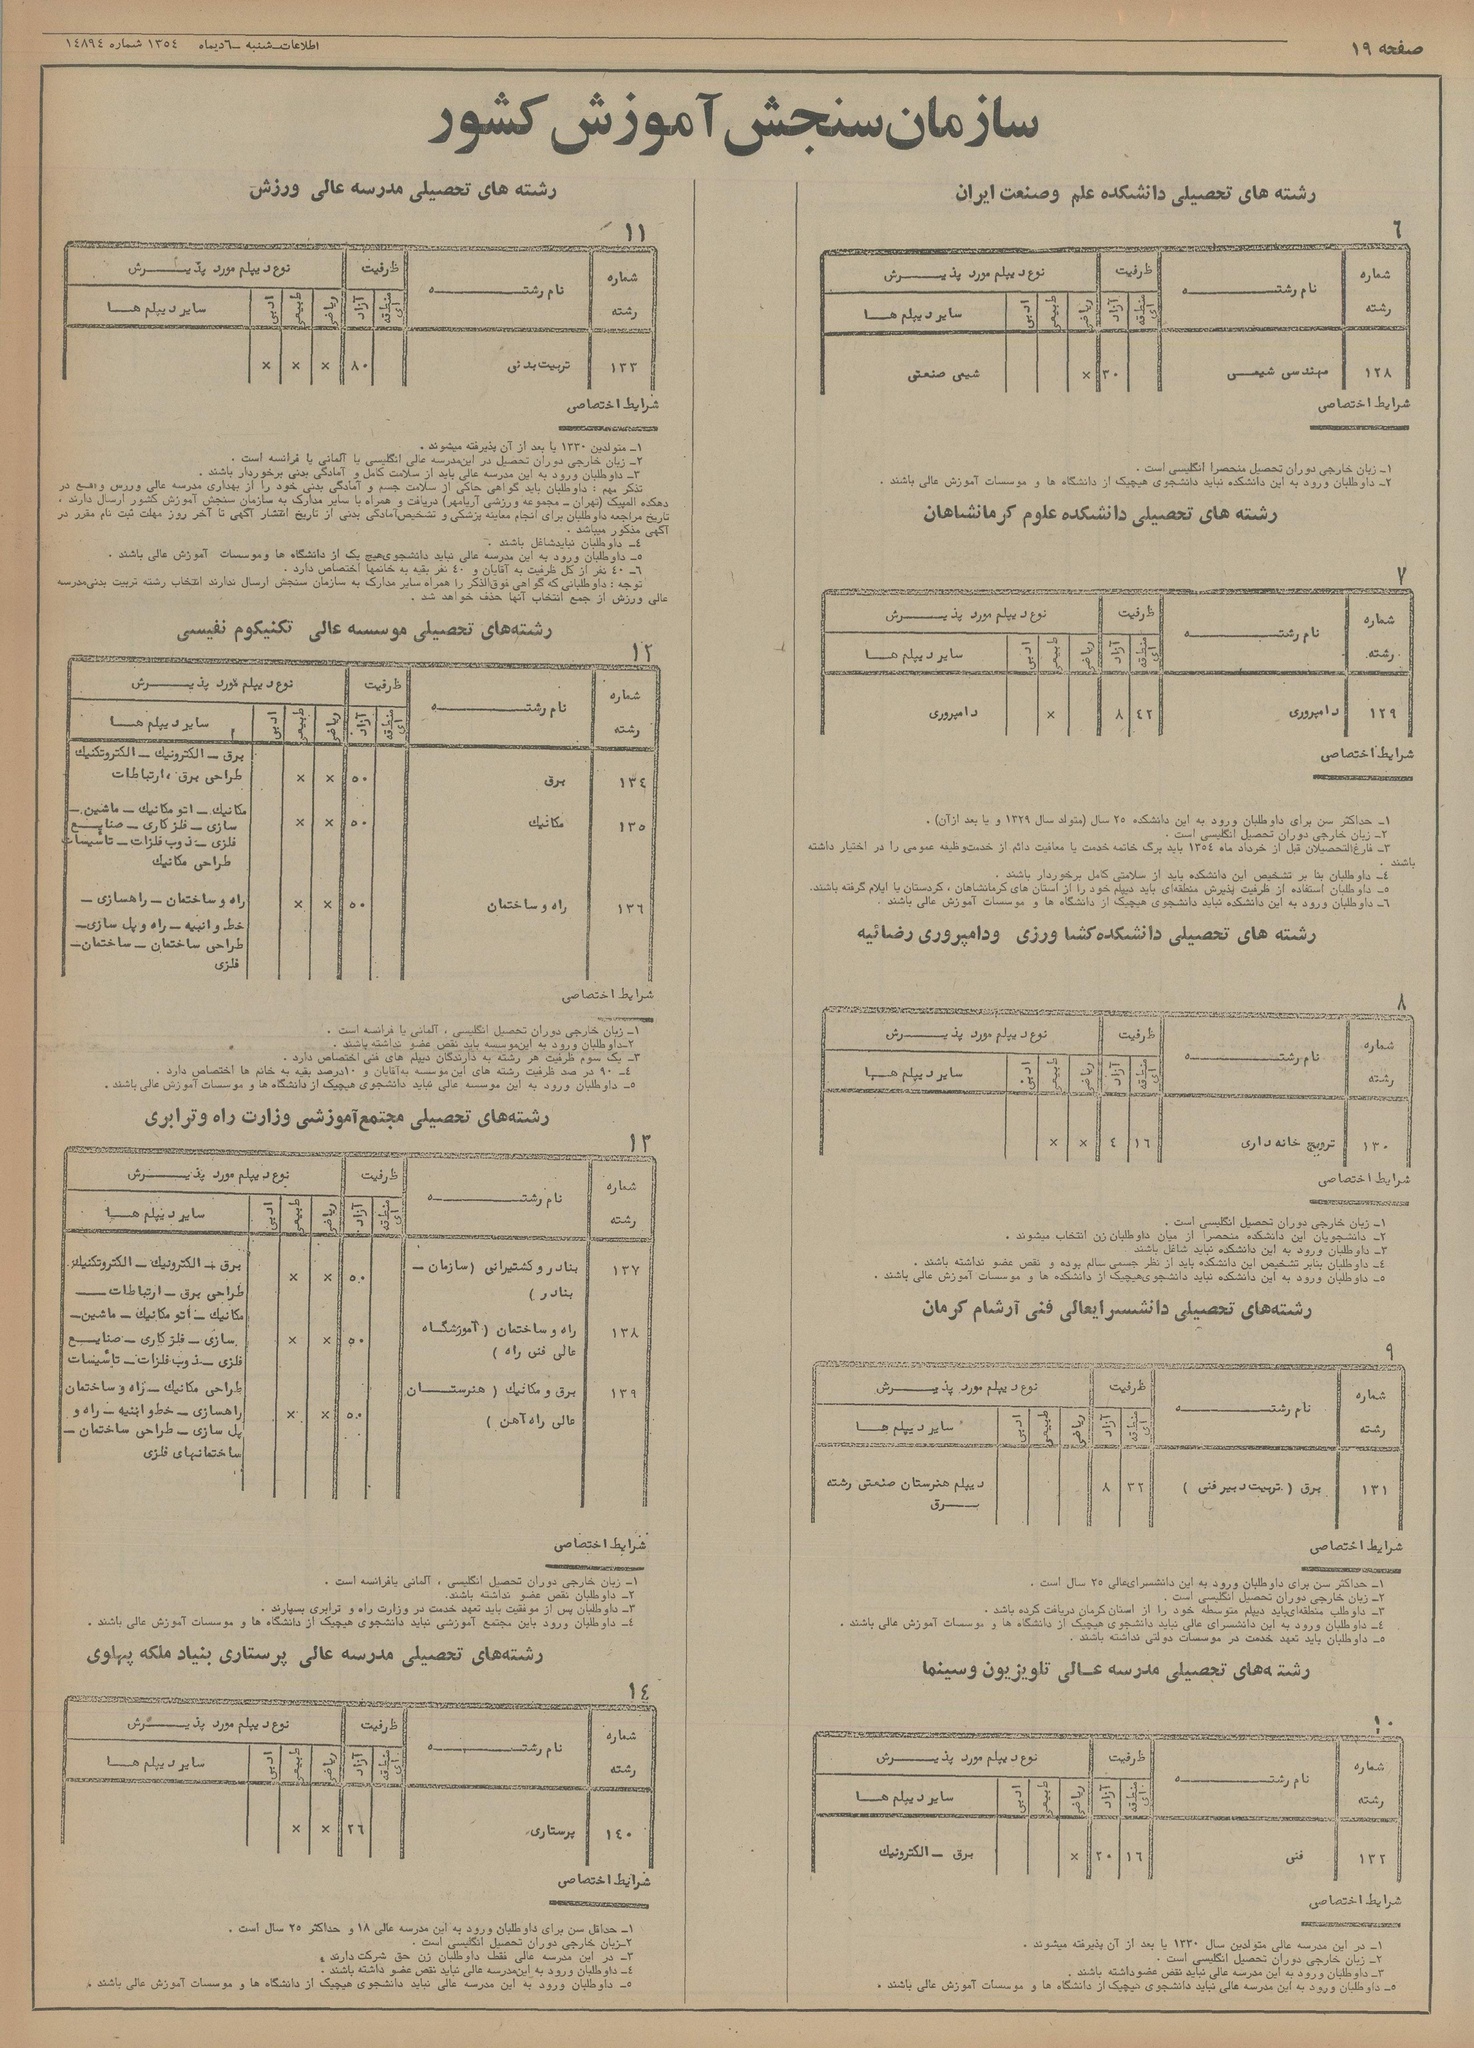 صفحه ۱۹
اطلاعات_شنبه _٦دیماه ۱۳٥٤ شماره ۱٤۸۹٤
سازمان سنجش آموزش کشور
رشته های تحصیلی دانشکده علم وصنعت ایران
٦
شماره رشته
نام رشتــه
ظرفیت
منطقه ای
آزاد
نوع دیپلم مورد پذیــرش
ریاضی
طبیعی
ادبی
سایر دیپلم هــا
۱۲۸ مهندسی شیمـی ۳۰ × شیمی صنعتی
شرایط اختصاصی
۱_ زبان خارجی دوران تحصیل منحصرا انگلیسی است .
۲_ داوطلبان ورود به این دانشکده نباید دانشجوی هیچیک از دانشگاه ها و موسسات آموزش عالی باشند .
رشته های تحصیلی دانشکده علوم کرمانشاهان
۷
شماره رشته
نام رشتــه
ظرفیت
منطقه ای
آزاد
نوع دیپلم مورد پذیــرش
ریاضی
طبیعی
ادبی
سایر دیپلم هــا
۱۲۹ دامپروری ٤۲ ۸ × دامپروری
شرایط اختصاصی
۱_ حداکثر سن برای داوطلبان ورود به این دانشکده ۲٥ سال (متولد سال ۱۳۲۹ و یا بعد ازآن) .
۲_ زبان خارجی دوران تحصیل انگلیسی است .
۳_ فارغ‌التحصیلان قبل از خرداد ماه ۱۳٥٤ باید برگ خاتمه خدمت یا معافیت دائم از خدمت‌وظیفه عمومی را در اختیار داشته
باشند .
٤_ داوطلبان بنا بر تشخیص این دانشکده باید از سلامتی کامل برخوردار باشند .
٥_ داوطلبان استفاده از ظرفیت پذیرش منطقه‌ای باید دیپلم خود را از استان های کرمانشاهان ، کردستان یا ایلام گرفته باشند.
٦_ داوطلبان ورود به این دانشکده نباید دانشجوی هیچیک از دانشگاه ها و موسسات آموزش عالی باشند .
رشته های تحصیلی دانشکده کشاورزی ودامپروری رضائیه
۸
شماره رشته
نام رشتــه
ظرفیت
منطقه ای
آزاد
نوع دیپلم مورد پذیــرش
ریاضی
طبیعی
ادبی
سایر دیپلم هــا
۱۳۰ ترویج خانه داری ۱٦ ٤ × ×
شرایط اختصاصی
۱_ زبان خارجی دوران تحصیل انگلیسی است .
۲_ دانشجویان این دانشکده منحصرا از میان داوطلبان زن انتخاب میشوند .
۳_ داوطلبان ورود به این دانشکده نباید شاغل باشند
٤_ داوطلبان بنابر تشخیص این دانشکده باید از نظر جسمی سالم بوده و نقص عضو نداشته باشند .
٥_ داوطلبان ورود به این دانشکده نباید دانشجوی‌هیچیک از دانشکده ها و موسسات آموزش عالی باشند .
رشته‌های تحصیلی دانشسرایعالی فنی آرشام کرمان
۹
شماره رشته
نام رشتــه
ظرفیت
منطقه ای
آزاد
نوع دیپلم مورد پذیــرش
ریاضی
طبیعی
ادبی
سایر دیپلم هــا
۱۳۱ برق ( تربیت دبیر فنی ) ۳۲ ۸ دیپلم هنرستان صنعتی رشته
بــرق
شرایط اختصاصی
۱_ حداکثر سن برای داوطلبان ورود به این دانشسرای‌عالی ۲٥ سال است .
۲_ زبان خارجی دوران تحصیل انگلیسی است .
۳_ داوطلب منطقه‌ای‌باید دیپلم متوسطه خود را از استان کرمان دریافت کرده باشد .
٤_ داوطلبان ورود به این دانشسرای عالی نباید دانشجوی هیچیک از دانشگاه ها و موسسات آموزش عالی باشند .
٥_ داوطلبان باید تعهد خدمت در موسسات دولتی نداشته باشند .
رشته‌های تحصیلی مدرسه عــالی تلویزیون وسینما
۱۰
شماره رشته
نام رشتــه
ظرفیت
منطقه ای
آزاد
نوع دیپلم مورد پذیــرش
ریاضی
طبیعی
ادبی
سایر دیپلم هــا
۱۳۲ فنی ۱٦ ۲۰ × برق _ الکترونیك
شرایط اختصاصی
۱_ در این مدرسه عالی متولدین سال ۱۳۳۰ یا بعد از آن پذیرفته میشوند .
۲_ زبان خارجی دوران تحصیل انگلیسی است .
۳_ داوطلبان ورود به این مدرسه عالی نباید نقص عضوداشته باشند .
٥_ داوطلبان ورود به این مدرسه عالی نباید دانشجوی هیچیک از دانشگاه ها و موسسات آموزش عالی باشند .
رشته های تحصیلی مدرسه عالی ورزش
۱۱
شماره رشته
نام رشتــه
ظرفیت
منطقه ای
آزاد
نوع دیپلم مورد پذیــرش
ریاضی
طبیعی
ادبی
سایر دیپلم هــا
۱۳۳ تربیت‌بدنی ۸۰ × × ×
شرایط اختصاصی
۱_ متولدین ۱۳۳۰ یا بعد از آن پذیرفته میشوند .
۲_ زبان خارجی دوران تحصیل در این‌مدرسه عالی انگلیسی یا آلمانی یا فرانسه است .
۳_ داوطلبان ورود به این مدرسه عالی باید از سلامت کامل و آمادگی بدنی برخوردار باشند .
تذکر مهم : داوطلبان باید گواهی حاکی از سلامت جسم و آمادگی بدنی خود را از بهداری مدرسه عالی ورزش واقع در
دهکده المپیک (تهران _ مجموعه ورزشی آریامهر) دریافت و همراه با سایر مدارک به سازمان سنجش آموزش کشور ارسال دارند .
تاریخ مراجعه داوطلبان برای انجام معاینه پزشکی و تشخیص‌آمادگی بدنی از تاریخ انتشار آگهی تا آخر روز مهلت ثبت نام مقرر در
آگهی مذکور میباشد .
٤_ داوطلبان نبایدشاغل باشند .
٥_ داوطلبان ورود به این مدرسه عالی نباید دانشجوی‌هیچ یک از دانشگاه ها وموسسات آموزش عالی باشند .
٦_ ٤۰ نفر از کل ظرفیت به آقایان و ٤۰ نفر بقیه به خانمها اختصاص دارد .
توجه : داوطلبانی که گواهی فوق‌الذکر را همراه سایر مدارک به سازمان سنجش ارسال ندارند انتخاب رشته تربیت بدنی‌مدرسه
عالی ورزش از جمع انتخاب آنها حذف خواهد شد .
رشته‌های تحصیلی موسسه عالی تکنیکوم نفیسی
۱۲
شماره رشته
نام رشتــه
ظرفیت
منطقه ای
آزاد
نوع دیپلم مورد پذیــرش
ریاضی
طبیعی
ادبی
سایر دیپلم هــا
۱۳٤ برق ٥۰ × × برق _ الکترونیك _ الکتروتکنیك
طراحی برق ، ارتباطات
۱۳٥ مکانیك ٥۰ × × مکانیك _ اتو مکانیك _ ماشین _
سازی _ فلز کاری _ صنایع
فلزی _ ذوب فلزات _ تأسیسات
طراحی مکانیك
۱۳٦ راه و ساختمان ٥۰ × × راه و ساختمان _ راهسازی _
خط و ابنیه _ راه و پل سازی_
طراحی ساختمان _ ساختمان_
فلزی
شرایط اختصاصی
۱_ زبان خارجی دوران تحصیل انگلیسی ، آلمانی یا فرانسه است .
۲_داوطلبان ورود به این‌موسسه باید نقص عضو نداشته باشند .
۳_ یک سوم ظرفیت هر رشته به دارندگان دیپلم های فنی اختصاص دارد .
٤_ ۹۰ در صد ظرفیت رشته های این‌موسسه به‌آقایان و ۱۰درصد بقیه به خانم ها اختصاص دارد .
٥_ داوطلبان ورود به این موسسه عالی نباید دانشجوی هیچیک از دانشگاه ها و موسسات آموزش عالی باشند .
رشته‌های تحصیلی مجتمع‌آموزشی وزارت راه وترابری
۱۳
شماره رشته
نام رشتــه
ظرفیت
منطقه ای
آزاد
نوع دیپلم مورد پذیــرش
ریاضی
طبیعی
ادبی
سایر دیپلم هــا
۱۳۷ بنادر و کشتیرانی ( سازمان _ ٥۰ × × برق _ الکترونیك _ الکتروتکنیك
بنادر ) طراحی برق _ ارتباطات _
مکانیك _ اتو مکانیك _ ماشین_
۱۳۸ راه و ساختمان ( آموزشگاه ٥۰ × × سازی _ فلز کاری _ صنایع
عالی فنی راه ) فلزی _ ذوب فلزات _ تأسیسات
۱۳۹ برق و مکانیك ( هنرستــان ٥۰ × × طراحی مکانیك _ راه و ساختمان
راهسازی _ خط و ابنیه _ راه و
عالی راه آهن ) پل سازی _ طراحی ساختمان _
ساختمانهای فلزی
شرایط اختصاصی
۱_ زبان خارجی دوران تحصیل انگلیسی ، آلمانی یافرانسه است .
۲_ داوطلبان نقص عضو نداشته باشند.
۳_ داوطلبان پس از موفقیت باید تعهد خدمت در وزارت راه و ترابری بسپارند .
٤_ داوطلبان ورود باین مجتمع آموزشی نباید دانشجوی هیچیک از دانشگاه ها و موسسات آموزش عالی باشند .
رشته‌های تحصیلی مدرسه عالی پرستاری بنیاد ملکه پهلوی
۱٤
شماره رشته
نام رشتــه
ظرفیت
منطقه ای
آزاد
نوع دیپلم مورد پذیــرش
ریاضی
طبیعی
ادبی
سایر دیپلم هــا
۱٤۰ پرستاری ۲٦ × ×
شرایط اختصاصی
۱_ حداقل سن برای داوطلبان ورود به این مدرسه عالی ۱۸ و حداکثر ۲٥ سال است .
۲_زبان خارجی دوران تحصیل انگلیسی است .
۳_ در این مدرسه عالی فقط داوطلبان زن حق شرکت دارند .
٤_ داوطلبان ورود به این‌مدرسه عالی نباید نقص عضو داشته باشند .
٥_ داوطلبان ورود به این مدرسه عالی نباید دانشجوی هیچیک از دانشگاه ها و موسسات آموزش عالی باشند .